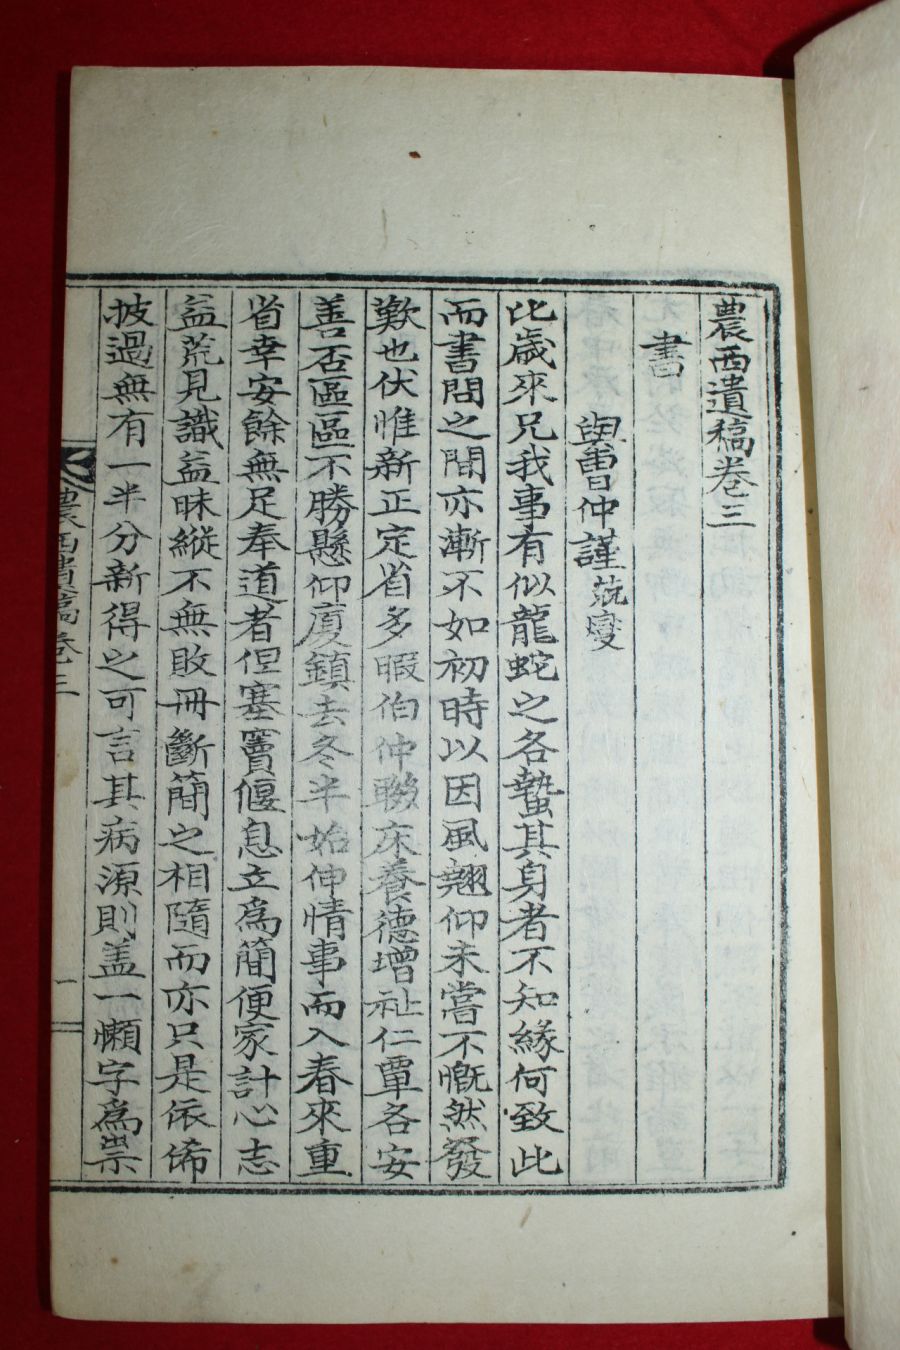 農西遺稿卷三
書
與曺仲謹苑燮
比歲來兄我事有似龍蛇之各蟄其身者不知緣何致此
而書問之間亦漸不如初時以因風翹仰未嘗不慨然發
歎也伏惟新正定省多暇伯仲聯床養德增祉仁覃各安
善否區區不勝懸仰廈鎭去冬半始伸情事而入春來重
省幸安餘無足奉道者但塞竇偃息立爲簡便家計心志
益荒見識益昧縱不無敗冊斷簡之相隨而亦只是依俙
披過無有一半分新得之可言其病源則盖一懶字爲祟
農西遺稿卷三
一